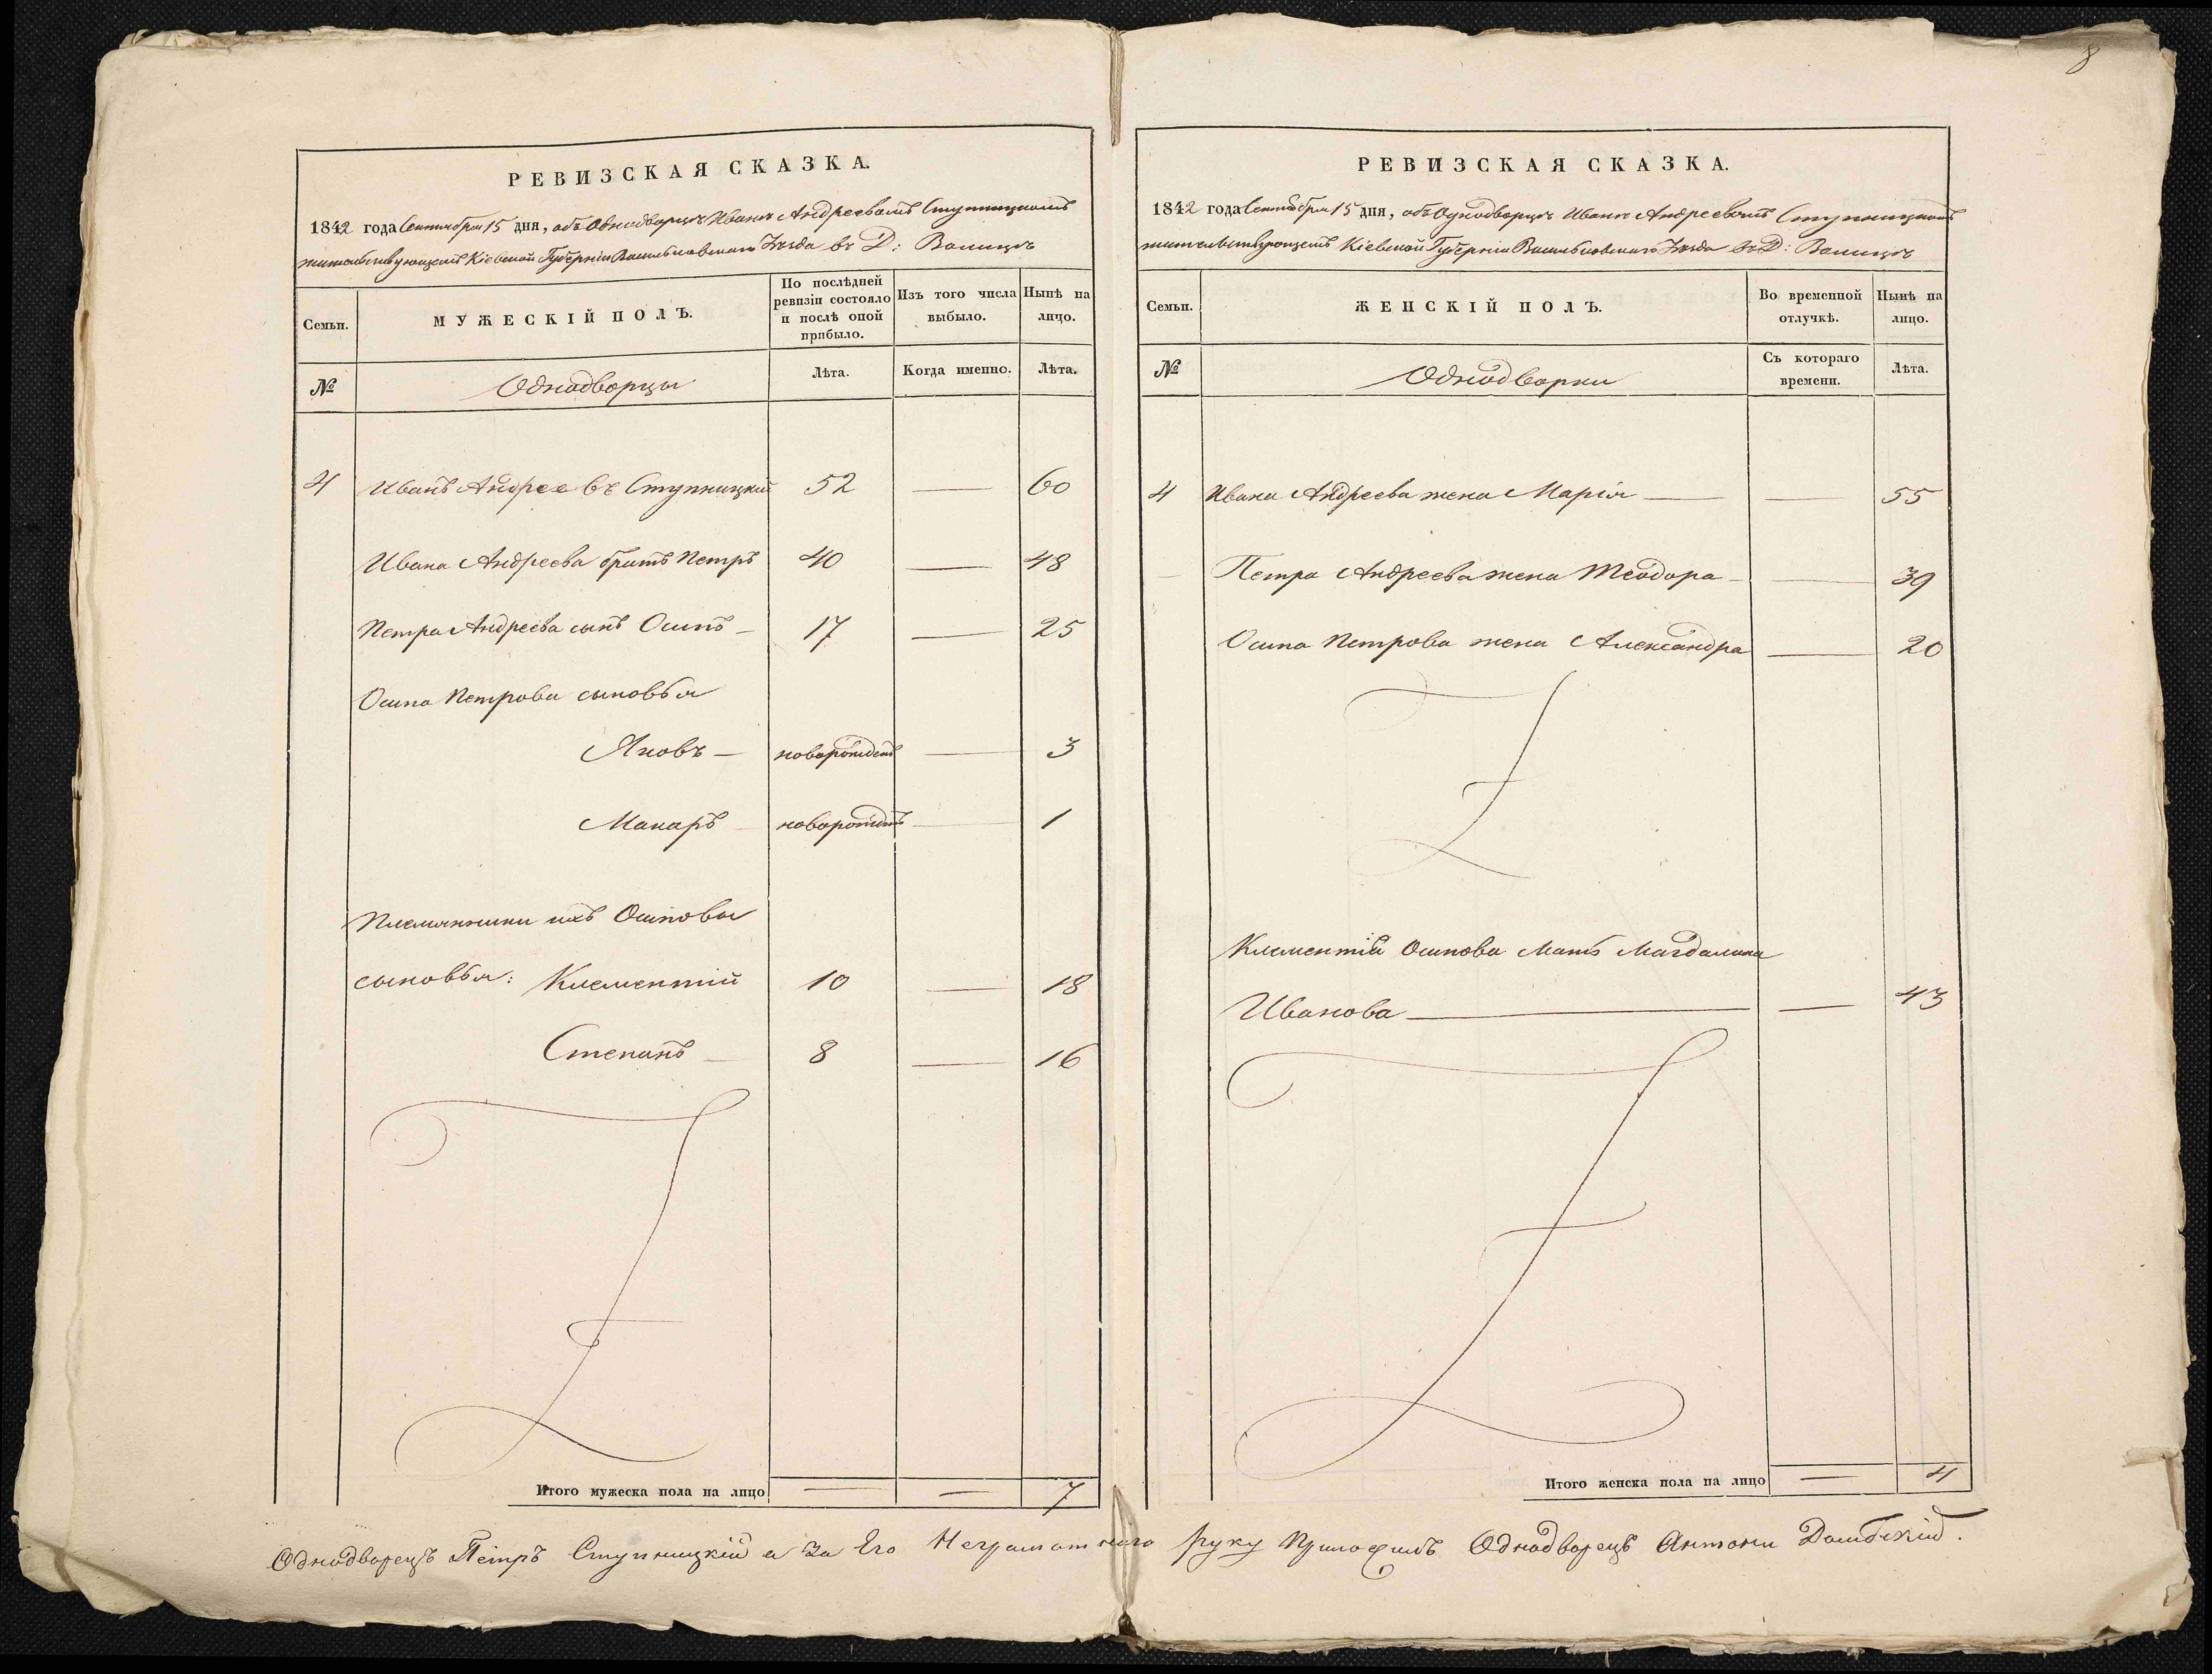 8
РЕВИЗСКАЯ СКАЗКА.
1842 года Сентября 15 дня, объ Однодворцѣ Иванѣ Андреевомъ Ступницкомъ
жительствующемъ Кіевской Губерніи Васильковскаго Уѣзда въ Д: Волицѣ
Семьи.
МУЖЕСКІЙ ПОЛЪ.
По послѣдней ревизіи состояло и послѣ оной прибыло.
Изъ того числа выбыло.
Нынѣ на лицо.
№
Однодворцы
Лѣта.
Когда именно.
Лѣта.
4 Иванъ Андреевъ Ступницкій 52 — 60
Ивана Андреева братъ Петръ 40 — 48
Петра Андреева сынъ Осипъ — 17 — 25
Осипа Петрова сыновья
Яковъ — новорожденъ — 3
Макаръ — новорожденъ — 1
Племянники ихъ Осиповы
сыновья: Клементій 10 — 18
Степанъ — 8 — 16
Итого мужеска пола на лицо — — 7
РЕВИЗСКАЯ СКАЗКА.
1842 года Сентября 15 дня, объ Однодворцѣ Иванѣ Андреевомъ Ступницкомъ
жительствующемъ Кіевской Губерніи Васильковскаго Уѣзда въ Д: Волицѣ
Семьи.
ЖЕНСКІЙ ПОЛЪ.
Во временной отлучкѣ.
Нынѣ на лицо.
№
Однодворки
Съ котораго времени.
Лѣта.
4 Ивана Андреева жена Марія — — 55
Петра Андреева жена Теодора — — 39
Осипа Петрова жена Александра — 20
Клементія Осипова Мать Магдалина
Иванова — — 43
Итого женска пола на лицо — 4
Однодворецъ Петръ Ступницкій а За Его Неграмотнаго руку Приложилъ Однодворецъ Антони Домбскій.